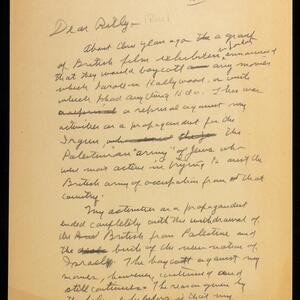 Dear Billy —
About three years ago a group
of British film exhibitors announced
that they would boycott any movies
which I wrote in Hollywood, or with
which I had anything to do. This was
a reprisal against my
activities as a propagandist for the
Irgun, the
Palestinian "army" of Jews who
were most active in trying to oust the
British army of occupation from that
country.
My activities as a propagandist
ended completely with the withdrawal of
the British from Palestine and
the birth of the new nation of
Israel. The boycott against my
movies, however, continued and
still continues. The reason given by